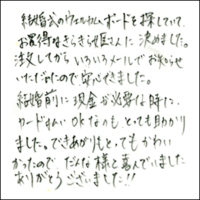 結婚式のウェルカムボードを探していて、
お買得なきらきら姫さんに決めました。
注文してからいろいろメールでお知らせ
いただけたので安心できました。
結婚前に現金が必要な時に、
カード払いOKなのもとても助かり
ました。できあがりもとてもかわい
かったので、だんな様と喜んでいました
ありがとうございました!!